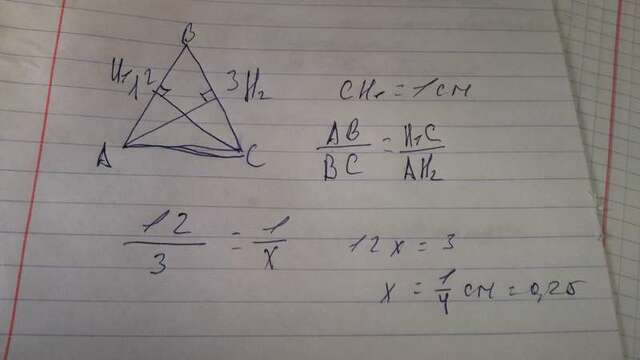 B
H₁ 12 3 H₂
A C
CH₁ = 1 см
AB/BC = H₁C/AH₂
12/3 = 1/x
12x = 3
x = 1/4 см = 0,25